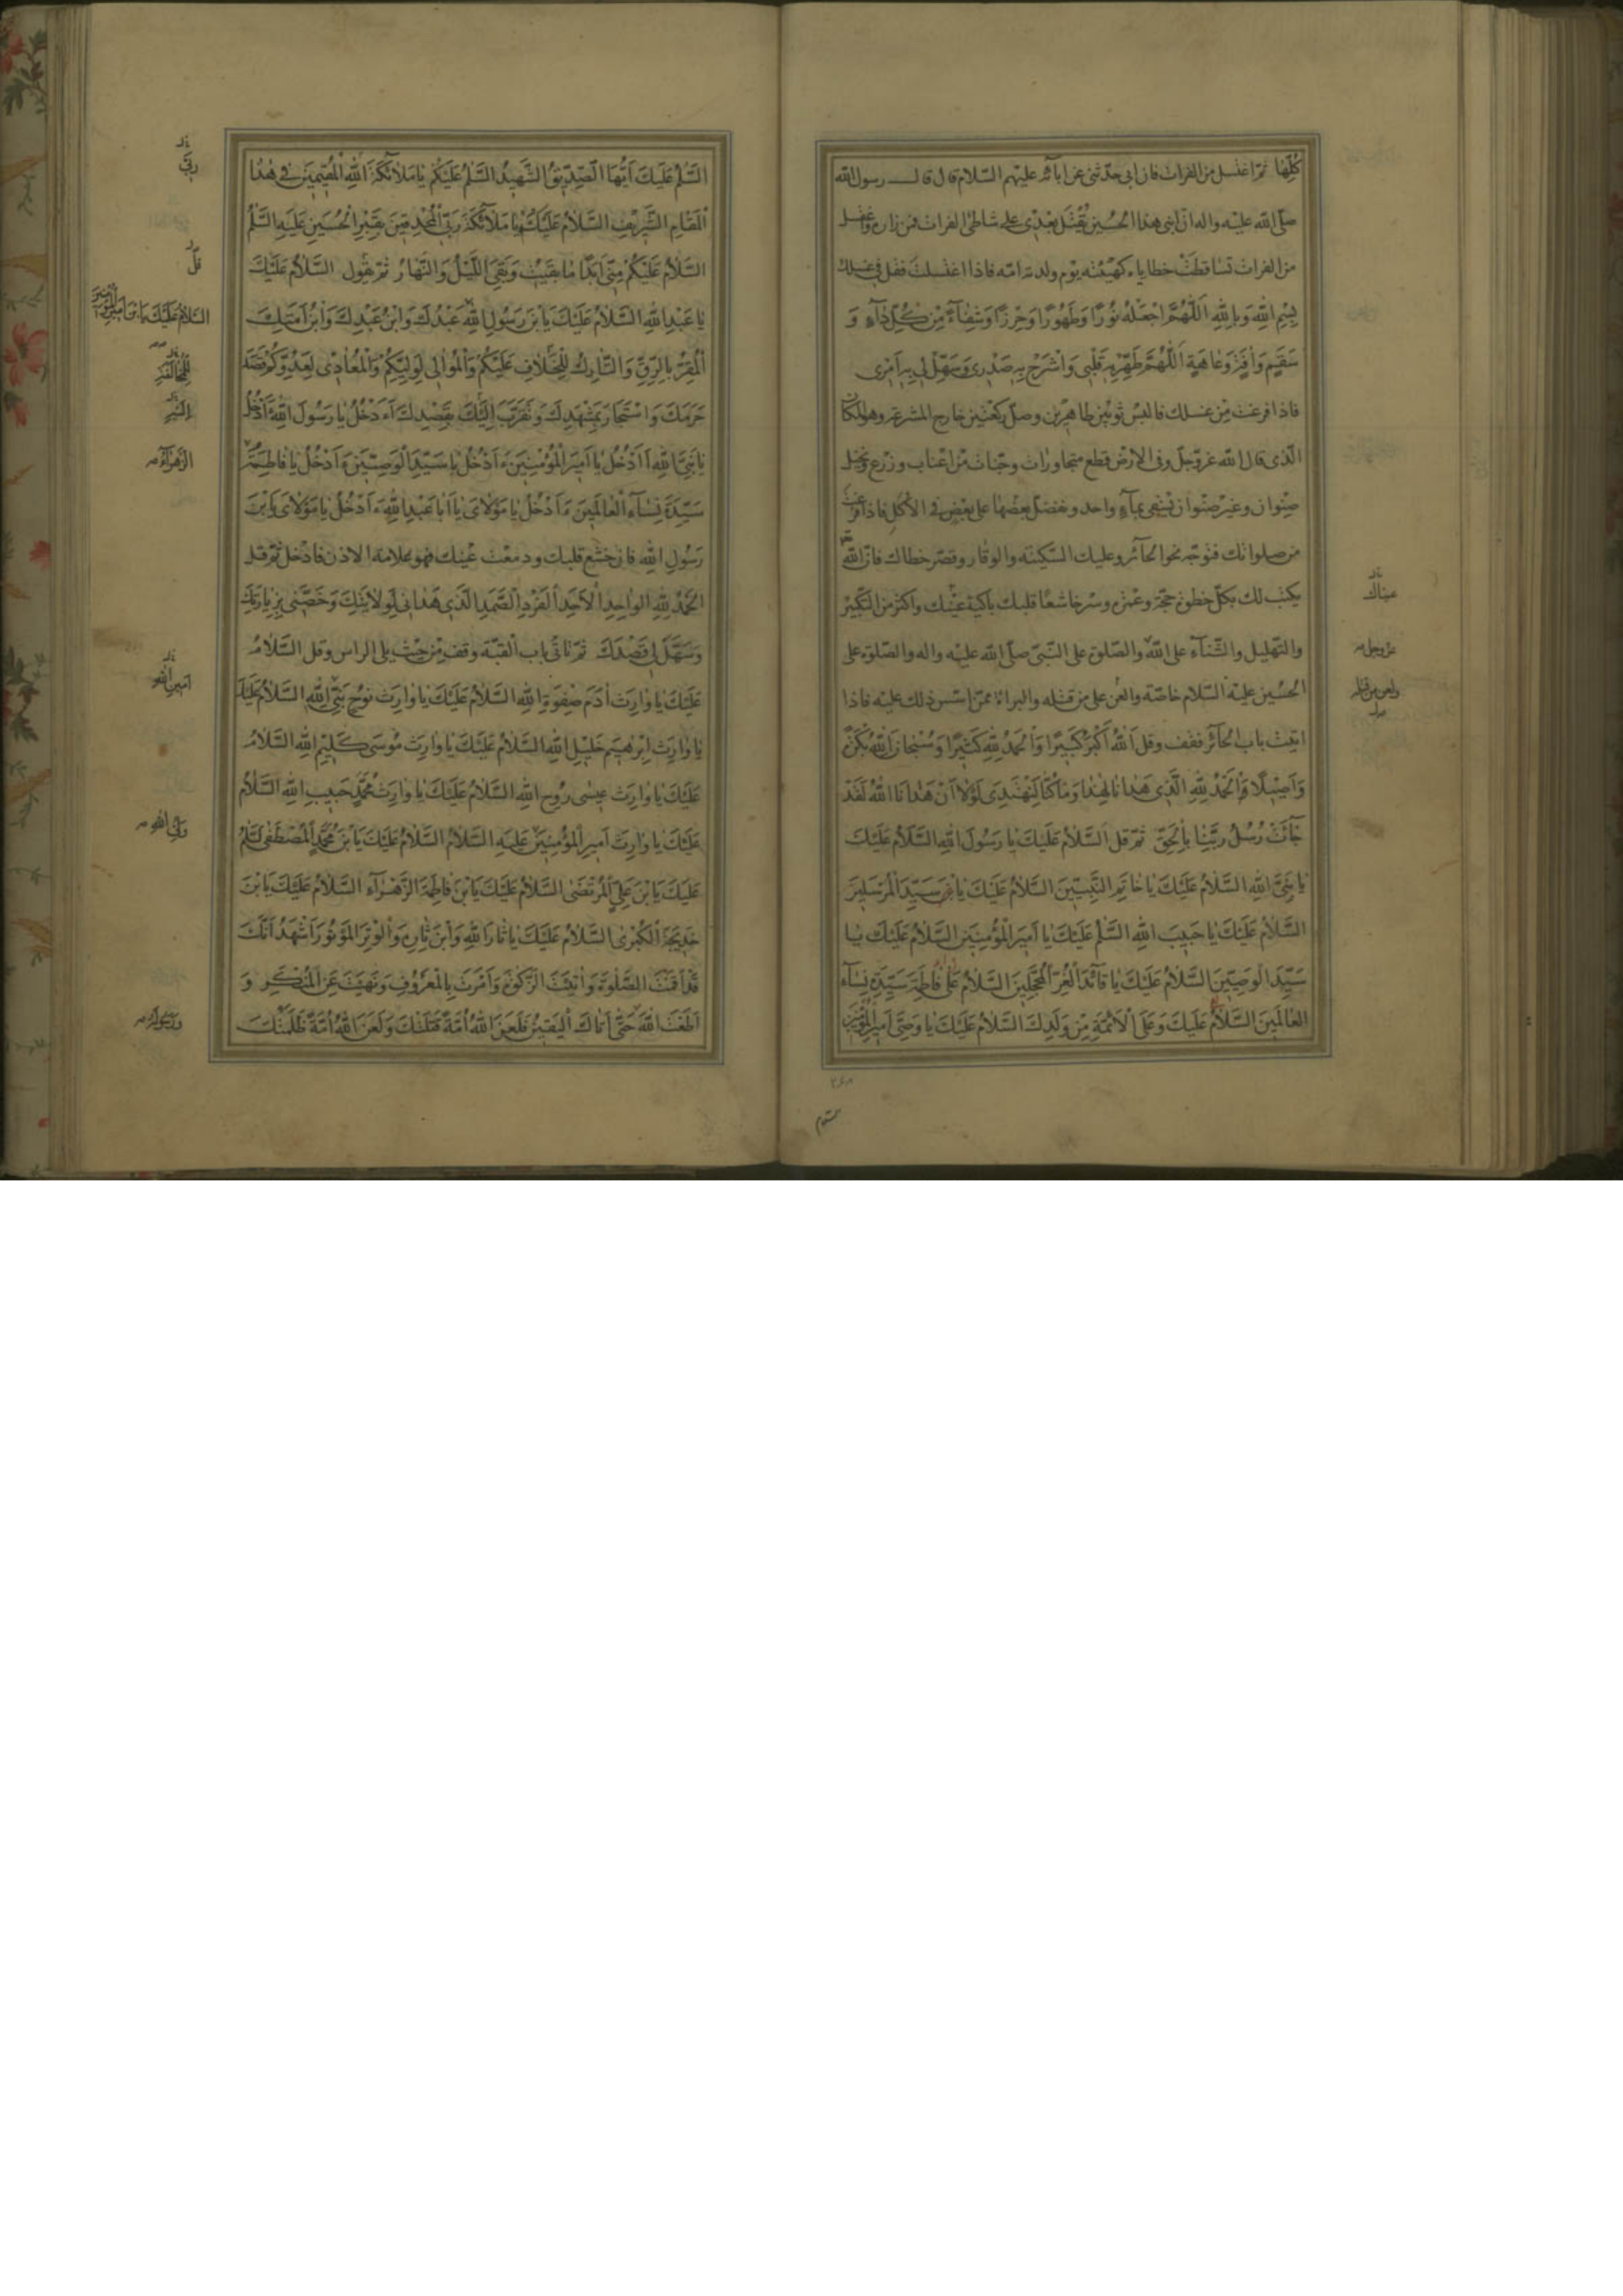 كُلِّهَا ثمّ اغتسل من الفرات فان ابى حدّثنى عن ابآئه عليهم السّلام قال قال رسول الله
صلّى الله عليه واله انّ ابنى هذا الحُسين يُقْتَل بعدى على شاطئ الفرات فمن زاره واغتسل
من الفرات تساقطت خطاياه كهيئته يوم ولدته امّه فاذا اغتسلت فقل فى غسلك
بِسْمِ اللهِ وَبِاللهِ اَللّهُمَّ اجْعَلْهُ نُورًا وَطَهُورًا وَحِرْزًا وَشِفَآءً مِنْ كُلِّ دَآءٍ وَ
سَقَمٍ وَاٰفَةٍ وَعَاهَةٍ اَللّهُمَّ طَهِّرْ بِهِ قَلْبِى وَاشْرَحْ بِهِ صَدْرِى وَسَهِّلْ لِى بِهِ اَمْرِى
فاذا فرغت مِن غسلك فالبس ثوبين طاهرين وصلّ ركعتين خارج المشرعة وهو المكان
الّذى قال الله عزّ وجلّ وفى الارض قطع متجاورات وجنّات من اعناب وزرع ونخيل
صِنْوان وغير صنوان تسقى بمآءٍ واحد ونفضّل بعضها على بعض فى الاكل فاذا فرغت
من صلواتك فتوجّه نحو الحآئر وعليك السّكينة والوقار وقصّر خطاك فانّ الله
يكتب لك بكلّ خطوة حجّة وعمرة وسر خاشعًا قلبك باكية عينك واكثر من التّكبير
عيناك
والتّهليل والثّنآء على الله والصّلوة على النّبىّ صلّى الله عليه واله والصّلوة على
عزّ وجلّ
الحُسين عليه السّلام خاصّة والعن على من قتله والبراءة ممّن اسّس ذلك عليه فاذا
اتيت باب الحآئر فقف وقل اَللهُ اَكْبَرُ كَبِيرًا وَالْحَمْدُ لِلّهِ كَثِيرًا وَسُبْحَانَ اللهِ بُكْرَةً
وَاَصِيلًا وَالْحَمْدُ لِلّهِ الَّذِى هَدانَا لِهٰذا وَمَا كُنَّا لِنَهْتَدِىَ لَوْلَا اَنْ هَدانَا اللهُ لَقَدْ
جَآءَتْ رُسُلُ رَبِّنَا بِالْحَقِّ ثمّ قل اَلسَّلَامُ عَلَيْكَ يَا رَسُولَ اللهِ السَّلَامُ عَلَيْكَ
يَا نَبِىَّ اللهِ السَّلَامُ عَلَيْكَ يَا خَاتَمَ النَّبِيّينَ السَّلَامُ عَلَيْكَ يَا سَيِّدَ الْمُرْسَلِينَ
السَّلَامُ عَلَيْكَ يَا حَبِيبَ اللهِ السَّلَمُ عَلَيْكَ يَا اَمِيرَ الْمُؤْمِنِينَ السَّلَامُ عَلَيْكَ يَا
سَيِّدَ الْوَصِيّينَ السَّلَامُ عَلَيْكَ يَا قَآئِدَ الْغُرِّ الْمُحَجَّلِينَ السَّلَامُ عَلَى فَاطِمَةَ سَيِّدَةِ نِسَآءِ
الْعَالَمِينَ السَّلَامُ عَلَيْكَ وَعَلَى الْاَئِمَّةِ مِنْ وَلَدِكَ السَّلَامُ عَلَيْكَ يَا وَصِىَّ اَمِيرِ الْمُؤْمِنِينَ
السَّلَمُ عَلَيْكَ اَيُّهَا الصِّدِّيقُ الشَّهِيدُ السَّلَمُ عَلَيْكُمْ يَا مَلَآئِكَةَ اللهِ الْمُقِيمِينَ فِى هٰذَا
رَبّى
الْمَقَامِ الشَّرِيفِ السَّلَامُ عَلَيْكُمْ يَا مَلَآئِكَةَ رَبِّى الْمُحْدِقِينَ بِقَبْرِ الْحُسَيْنِ عَلَيْهِ السَّلَمُ
السَّلَامُ عَلَيْكُمْ مِنِّى اَبَدًا مَا بَقِيتُ وَبَقِىَ اللَّيْلُ وَالنَّهَارُ ثمّ تقول السَّلَامُ عَلَيْكَ
قل
السَّلَامُ عَلَيْكَ يَابْنَ اَمِيرِ الْمُؤْمِنِينَ
يَا اَبَا عَبْدِ اللهِ السَّلَامُ عَلَيْكَ يَابْنَ رَسُولِ اللهِ عَبْدُكَ وَابْنُ عَبْدِكَ وَابْنُ اَمَتِكَ
الْمُقِرُّ بِالرِّقِّ وَالتَّارِكُ لِلْخِلَافِ عَلَيْكُمْ وَالْمُوَالِى لِوَلِيِّكُمْ وَالْمُعَادِى لِعَدُوِّكُمْ قَصَدَ
حَرَمَكَ وَاسْتَجَارَ بِمَشْهَدِكَ وَتَقَرَّبَ اِلَيْكَ بِقَصْدِكَ ءَاَدْخُلُ يَا رَسُولَ اللهِ ءَاَدْخُلُ
يَا نَبِىَّ اللهِ ءَاَدْخُلُ يَا اَمِيرَ الْمُؤْمِنِينَ ءَاَدْخُلُ يَا سَيِّدَ الْوَصِيّينَ ءَاَدْخُلُ يَا فَاطِمَةُ
الزَّهْرَآءُ
سَيِّدَةَ نِسَآءِ الْعَالَمِينَ ءَاَدْخُلُ يَا مَوْلَاىَ يَا اَبَا عَبْدِ اللهِ ءَاَدْخُلُ يَا مَوْلَاىَ يَابْنَ
رَسُولِ اللهِ فان خشع قلبك ودمعت عينك فهو علامة الاذن فادخل ثمّ قل
الْحَمْدُ لِلّهِ الْوَاحِدِ الْاَحَدِ الْفَرْدِ الصَّمَدِ الَّذِى هَدَانِى لِوَلَايَتِكَ وَخَصَّنِى بِزِيَارَتِكَ
وَسَهَّلَ لِى قَصْدَكَ ثمّ تاتى باب القبّة وقف من حيث يلى الراس وقل السَّلَامُ
عَلَيْكَ يَا وَارِثَ اٰدَمَ صِفْوَةِ اللهِ السَّلَامُ عَلَيْكَ يَا وَارِثَ نُوحٍ نَبِىِّ اللهِ السَّلَامُ عَلَيْكَ
يَا وَارِثَ اِبْرٰهِيمَ خَلِيلِ اللهِ السَّلَامُ عَلَيْكَ يَا وَارِثَ مُوسَى كَلِيمِ اللهِ السَّلَامُ
عَلَيْكَ يَا وَارِثَ عِيسَى رُوحِ اللهِ السَّلَامُ عَلَيْكَ يَا وَارِثَ مُحَمَّدٍ حَبِيبِ اللهِ السَّلَامُ
عَلَيْكَ يَا وَارِثَ اَمِيرِ الْمُؤْمِنِينَ عَلَيْهِ السَّلَامُ السَّلَامُ عَلَيْكَ يَابْنَ مُحَمَّدٍ الْمُصْطَفَى السَّلَمُ
عَلَيْكَ يَابْنَ عَلِىٍّ الْمُرْتَضَى السَّلَامُ عَلَيْكَ يَابْنَ فَاطِمَةَ الزَّهْرَآءِ السَّلَامُ عَلَيْكَ يَابْنَ
خَدِيجَةَ الْكُبْرَى السَّلَامُ عَلَيْكَ يَا ثَارَ اللهِ وَابْنَ ثَارِهِ وَالْوِتْرَ الْمَوْتُورَ اَشْهَدُ اَنَّكَ
قَدْ اَقَمْتَ الصَّلٰوةَ وَاٰتَيْتَ الزَّكٰوةَ وَاَمَرْتَ بِالْمَعْرُوفِ وَنَهَيْتَ عَنِ الْمُنْكَرِ وَ
اَطَعْتَ اللهَ حَتَّى اَتَاكَ الْيَقِينُ فَلَعَنَ اللهُ اُمَّةً قَتَلَتْكَ وَلَعَنَ اللهُ اُمَّةً ظَلَمَتْكَ
وَرَسُولَهُ